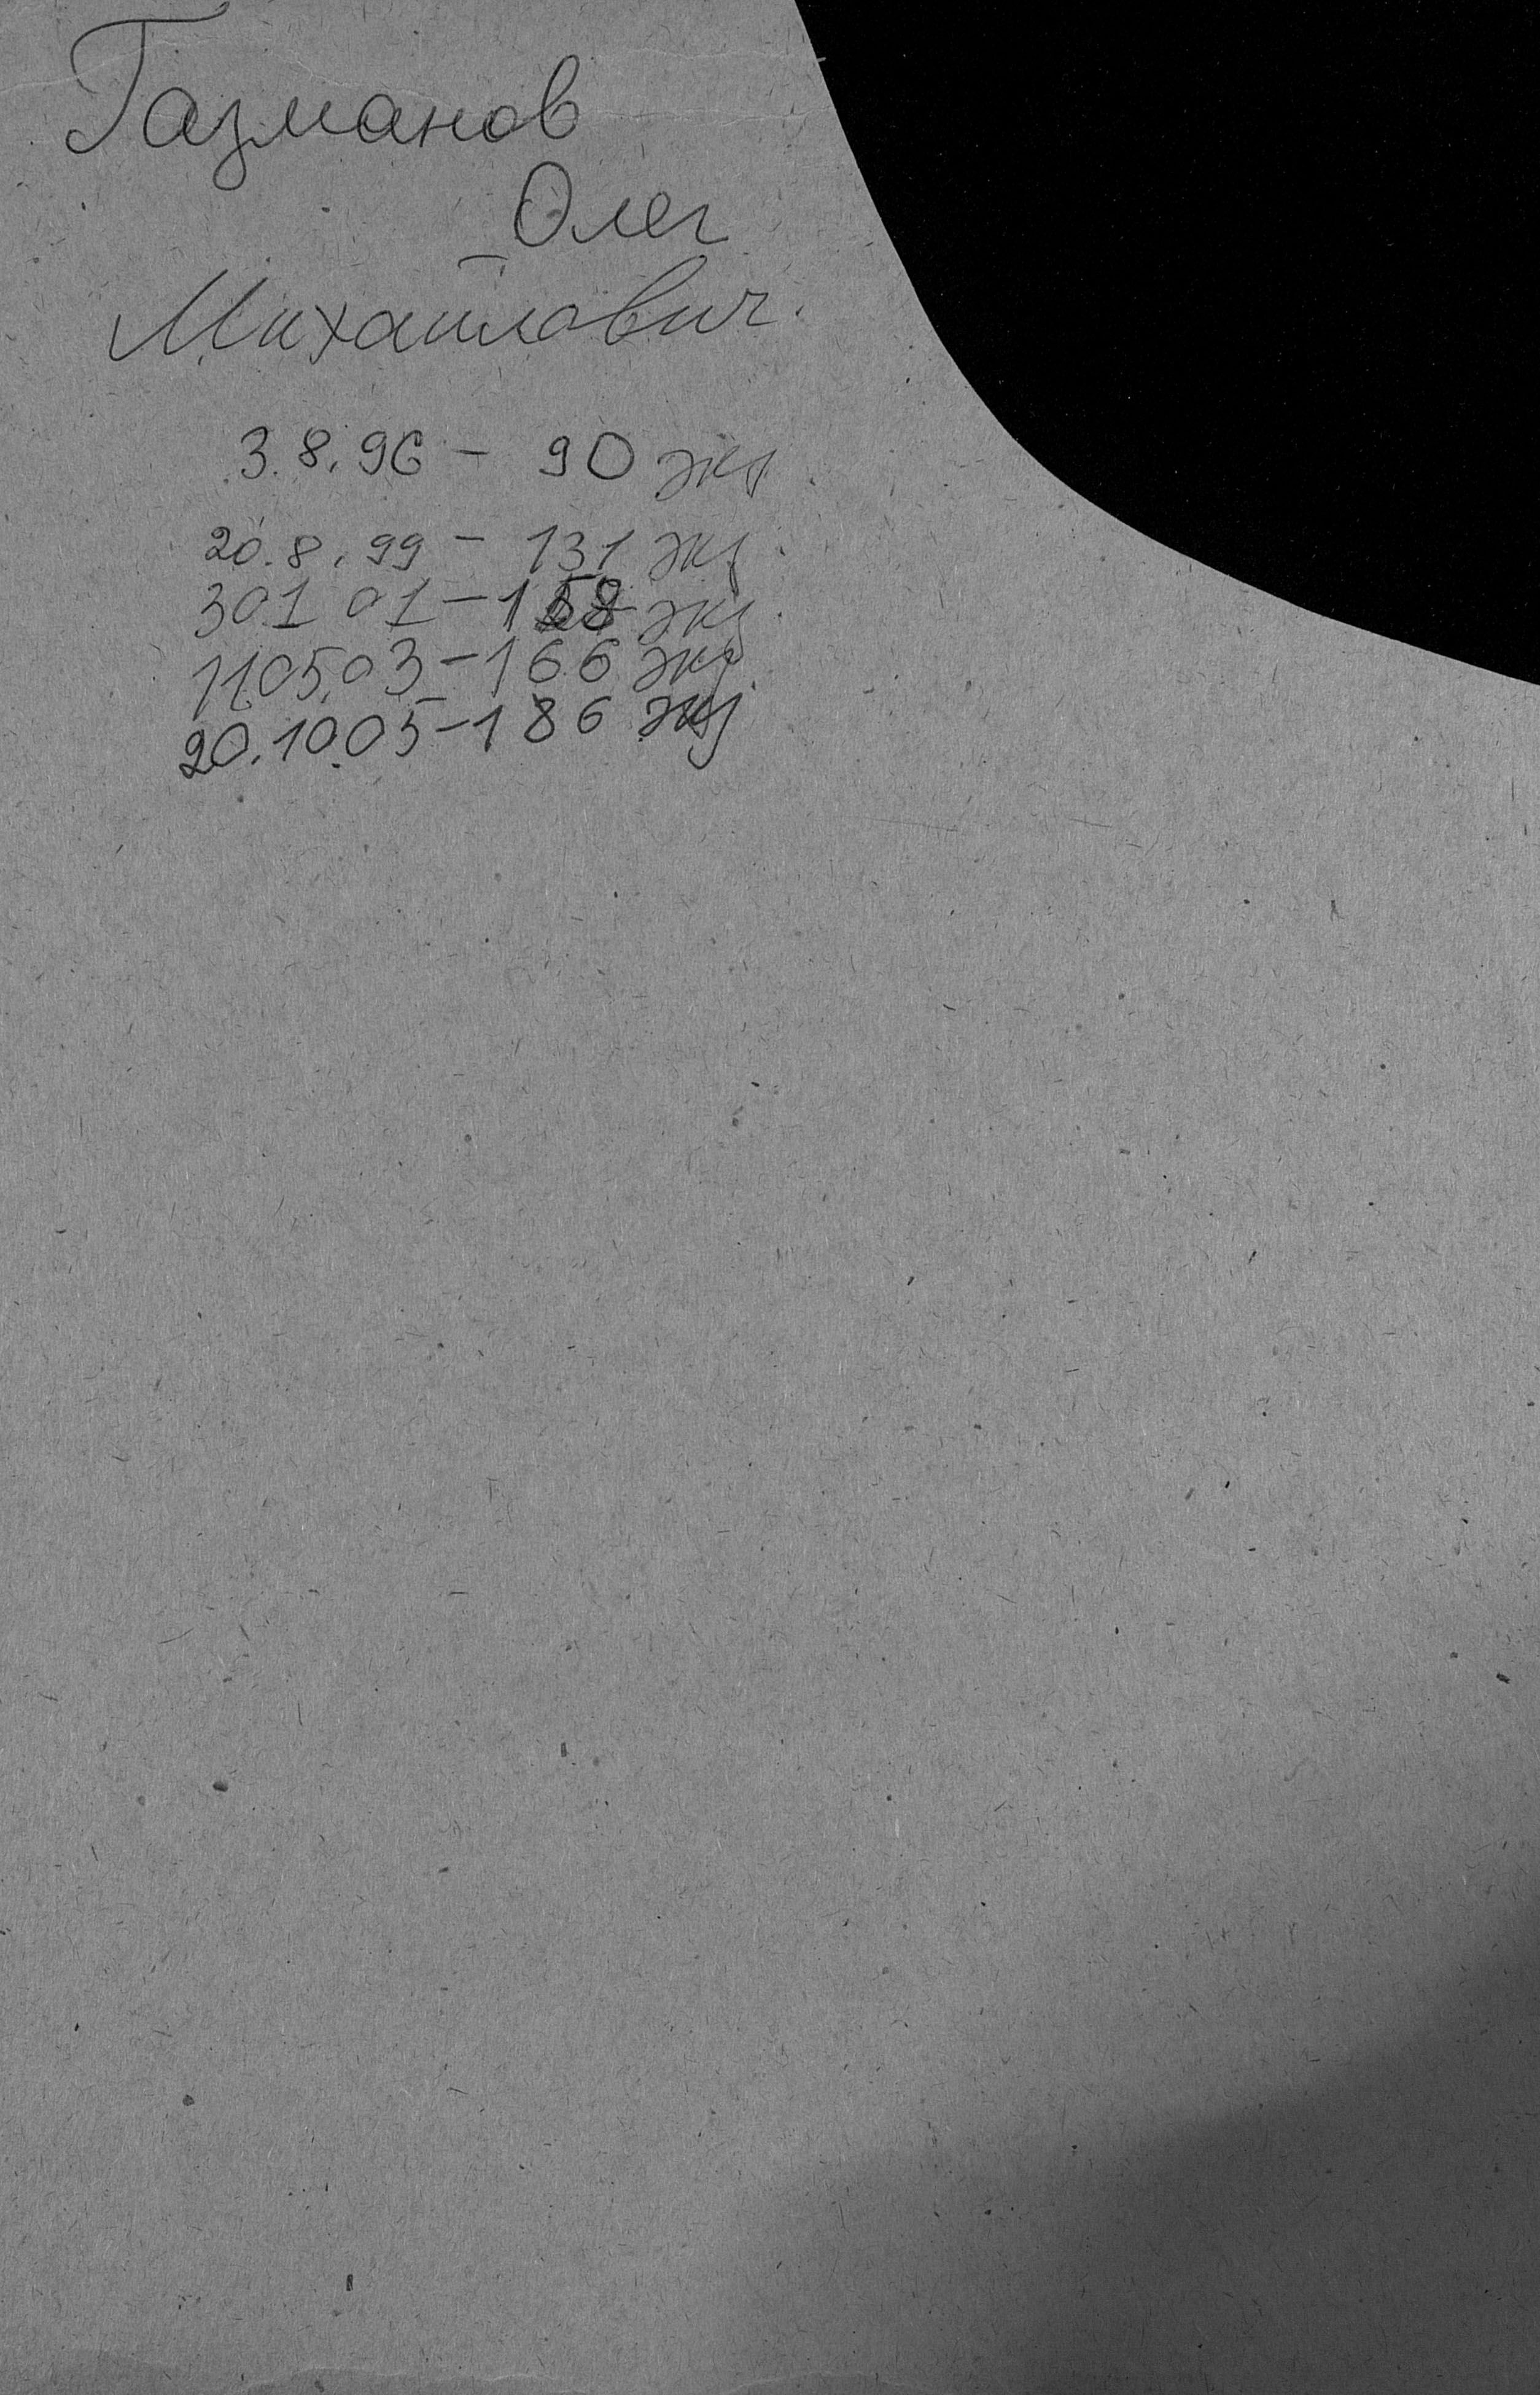 Газманов
Олег
Михайлович.
3.8.96 - 90 экз.
20.8.99 - 131 экз.
30.1 01 - 158 экз.
11.05.03 - 166 экз.
20.10.05 - 186 экз